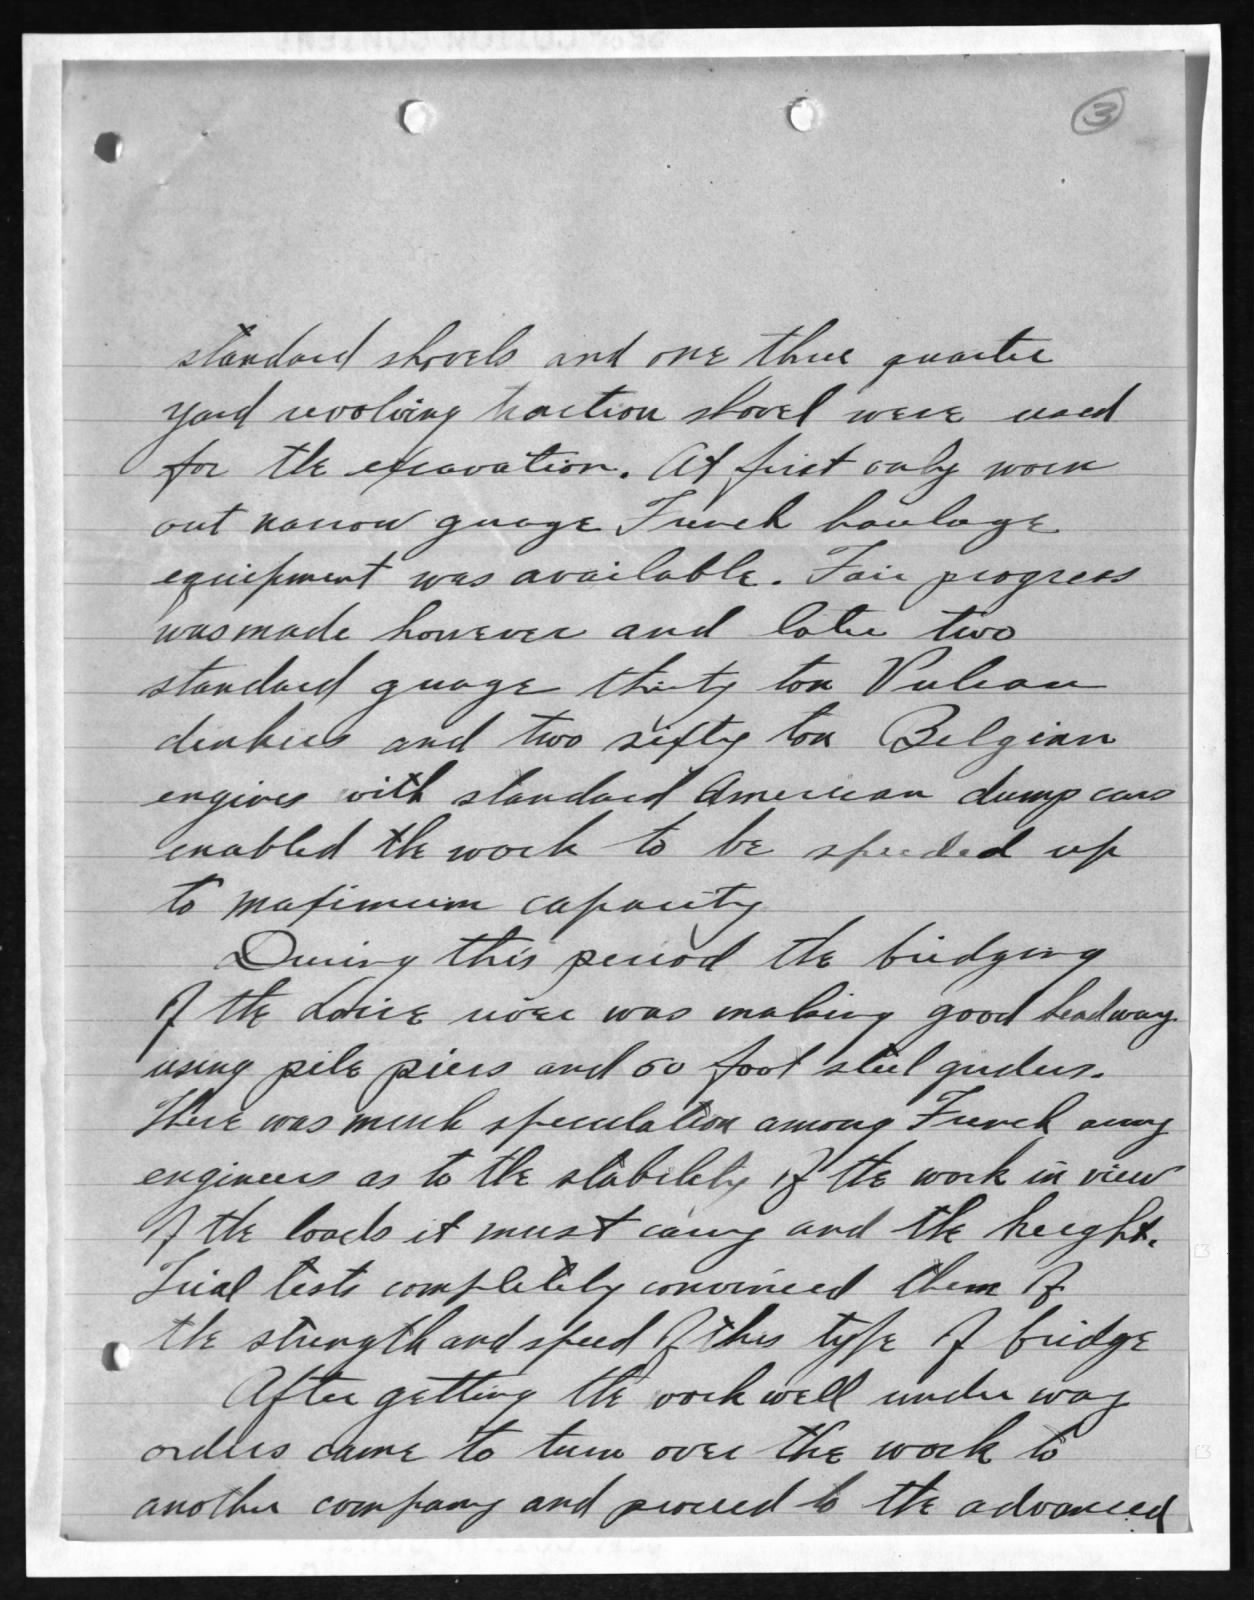 3
standard shovels and one three quarter
yard revolving traction shovel were used
for the excavation. At first only worn
out narrow guage French haulage
equipment was available. Fair progress
was made however and later two
standard guage thirty ton Vulcan
dinkies and two sixty ton Belgian
engines with standard American dump cars
enabled the work to be speeded up
to maximum capacity
During this period the bridging
of the Loire river was making good headway
using pile piers and 60 foot steel girders.
There was much speculation among French army
engineers as to the stability of the work in view
of the loads it must carry and the height.
Trial tests completely convinced them of
the strength and speed of this type of bridge
After getting the work well under way
orders came to turn over the work to
another company and proceed to the advanced